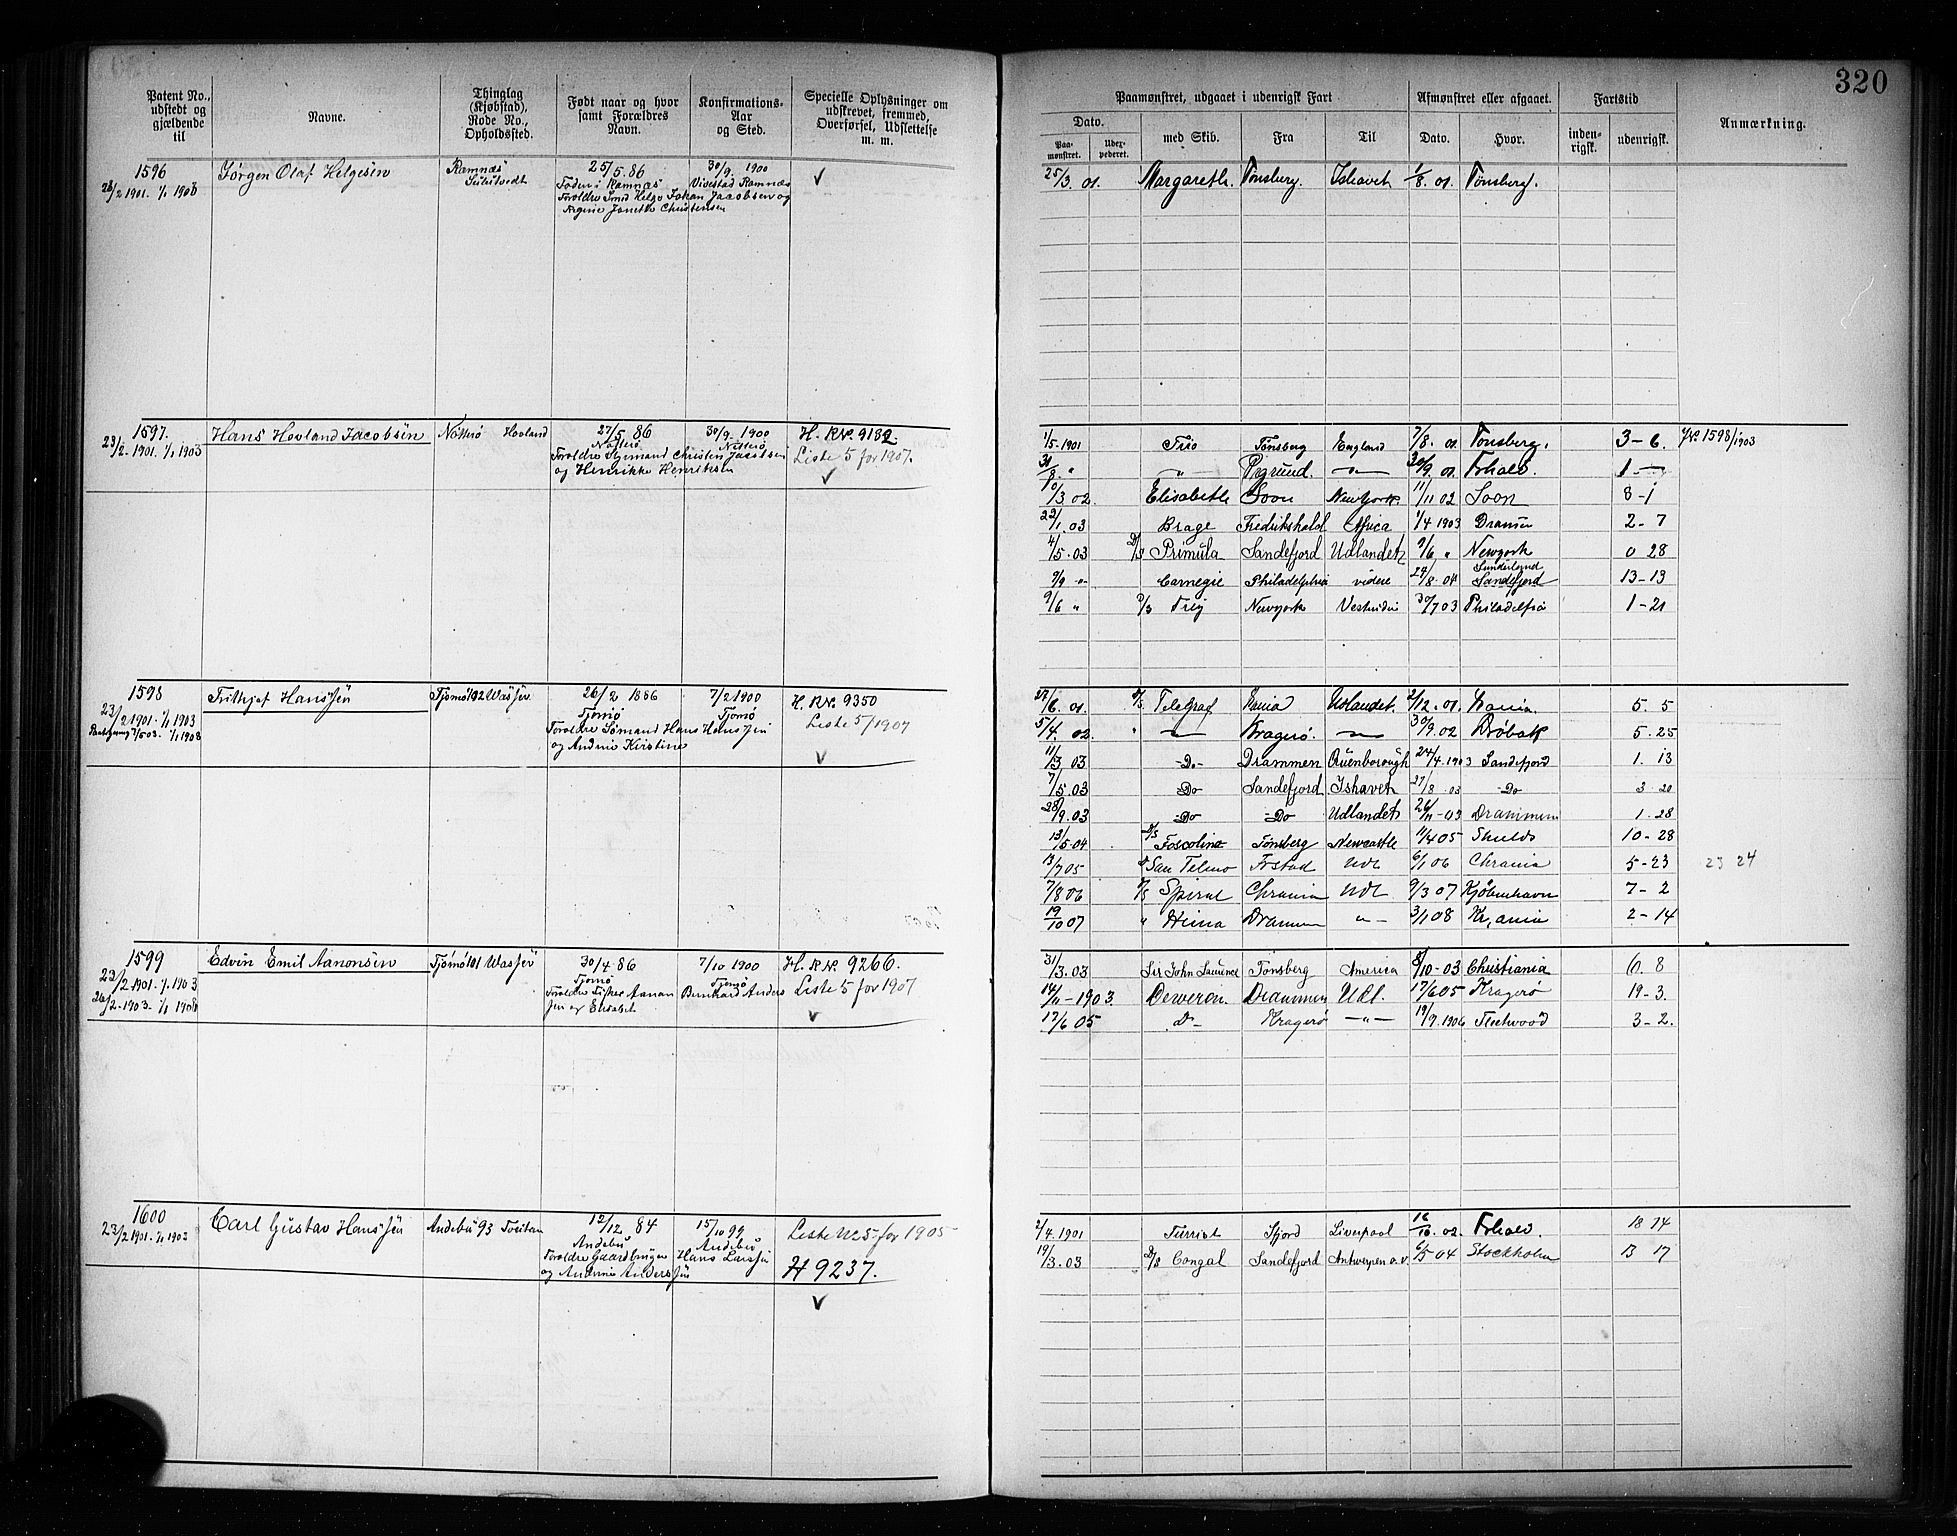 320
Patent No., udstedt og gjældende til
Navne.
Thinglag (Kjøbstad), Rode No., Opholdssted.
Født naar og hvor samt Forældres Navn.
Konfirmations-Aar og Sted.
Specielle Oplysninger om udskrevet, fremmed, Overførsel, Udslettelse m. m.
Paamønstret, udgaaet i udenrigsk Fart
Afmønstret eller afgaaet.
Fartstid
Anmærkning.
Dato.
Paa-mønstret.
Uder-pederet.
med Skib.
Fra
Til
Dato.
Hvor.
inden-rigsk.
udenrigsk.
1596 Jørgen Olaf Helgesen Ramnæs 25/5.86 30/9. 1900 √
23/2 1901. 1/1 1903 Føden i Ramnæs Vivestad Ramnæs
Forældre Smed Helge Johan Jacobsen og
Regine Janette Christensen
25/3.01. Margareth. Tønsberg. Ishavet 1/8.01. Tønsberg.
1597. Hans Hovland Jacobsen Nøtterø Hovland 27/5 86 30/9.1900 H. RN. 9182.
23/2.1901. 1/1 1903 Nøtterø Nøtterø Liste 5 for 1907.
Forældre Sjømand Christen Jacobsen √
og Henrikke Henriksen
1/5.1901 Trio Tønsberg England 7/8.01 Tønsberg. 3-6. No 1598/1903
31/8. " — " — P.grund — " — 30/9.01. Frhald. 1 —
10/3 02. Elisabeth Soon New York 11/11 02 Soon 8-1
22/1.03 Brage Fredrikshald Africa 1/4 1903 Dramen 2-7
4/5.03 D/S Primula Sandefjord Udlandet 9/6 " Newyork 0 28
9/9 " Carnegie Philadelphia videre 24/8.04 Sunderland Sandefjord 13-13
9/6 " D/S Frey Newyork Vestindie 30/7 03 Philadelfia 1-21
1598 Frithjof Hanssen Tjømø 192 Wasser 26/2 1886 7/2 1900 H. RN. 9350
23/2 1901. 1/1 1903 Tjømø Tjømø Liste 5/1907
1/1 1908 Forældre Sømand Hans Hanssen √
og Andrine Kirstine
27/6.01. D/S Telegraf Kania Udlandet. 2/12.01. Kania. 5. 5
5/4. 02. " — " — Kragerø. — " — 30/9.02 Drøbak 5.25
11/3 03 -Do- Drammen Quenborough 24/4.1903 Sandefjord 1. 13
7/5.03 Do Sandefjord Ishavet 27/8.03 Do 3 20
28/9.03 Do Do Udlandet 26/11-03 Drammen 1.28
13/5.04 D/S Foscolino Tønsberg Newcastle 11/4 05 Shields 10-28
13/7 05 San Telmo Frstad Udl 6/1 06 Chrania 5-23 23 24
7/8 06 D/S Spiral Chrania Udl 9/3 07 Kjøbenhavn 7-2
19/10 07 " Heina Dramen " - 3/1 08 Kr,ania 2-14
1599 Edvin Emil Aanonsen Tjømø 101 Wasser 30/4.86 7/10 1900 H. RN. 9266.
23/2 1901. 1/1 1903 Tjømø Tjømø Liste 5 for 1907
26/2-1903. 1/1 1908 Forældre Fisker Aanan Bernhard Anders √
sen og Elisabet
31/3.03 Sir John Tønsberg America 8/10-03 Christiania 6. 8
14/11-1903. Deveron Drammen Udl. 17/6 05 Kragerø 19-3.
17/6 05 D- Kragerø — " — 19/9.1906 Fleetwood 3-2.
1600 Carl Gustav Hanssen Andebu 93 12/12 84 15/10 99 Liste No 5 for 1905
23/2 1901. 1/1 1903 Andebu Andebu H 9237.
og Andrine Anderssen Hans Larsen √
2/4.1901 Turrist Fjord Liverpool 16/10.02. Frhald. 18 14
19/3.03 D/S Congal Sandefjord Antwerpen o.v. 6/5 04 Stockholm 13 17